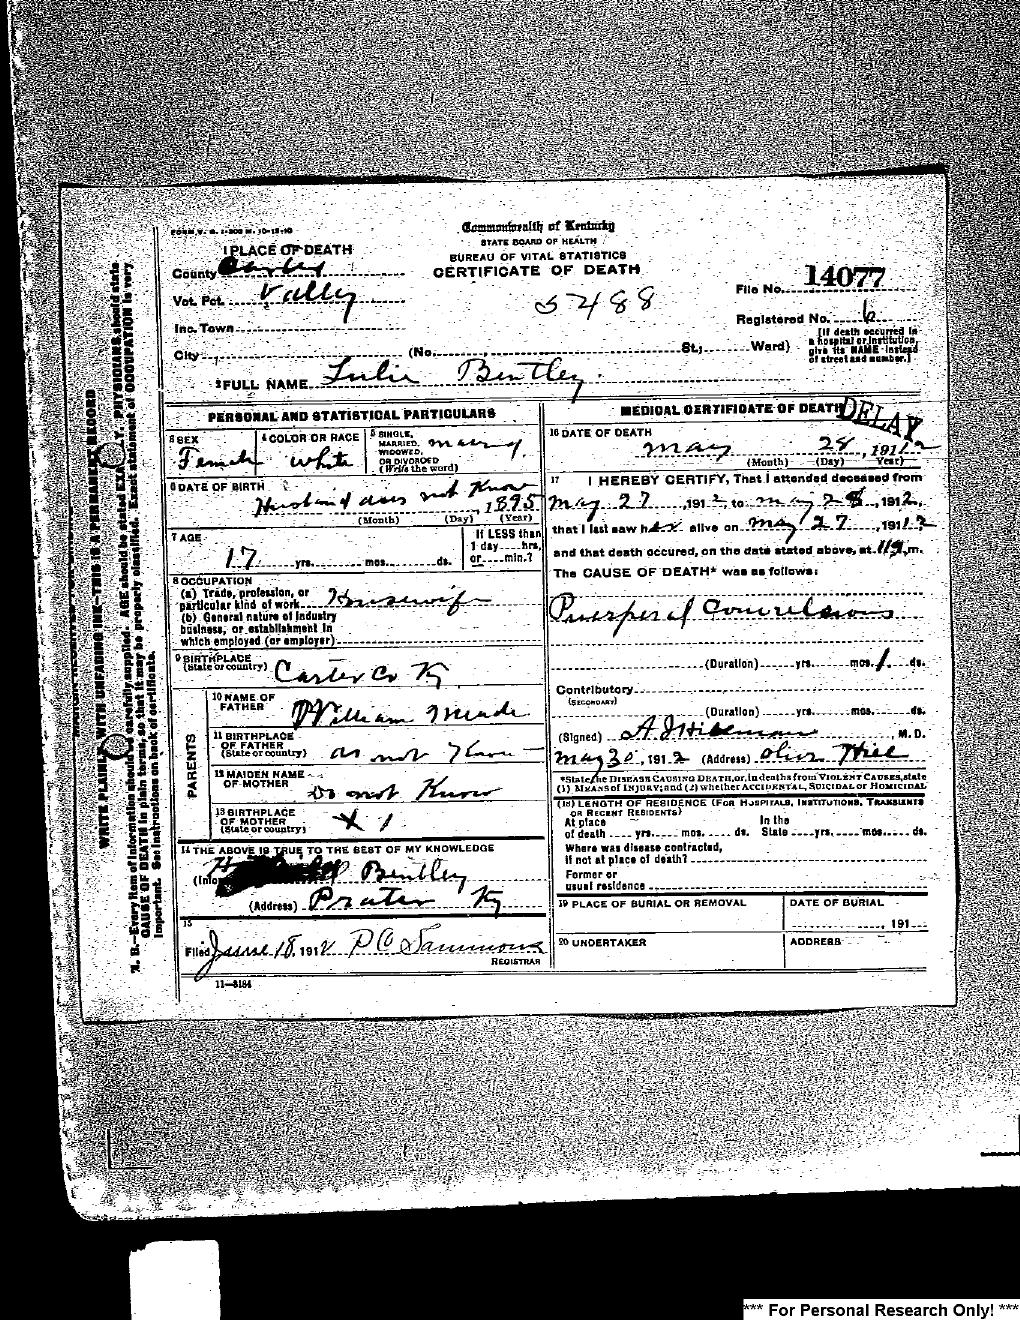 FORM V. S. 1-500 M. 10-13-10
Commonwealth of Kentucky
STATE BOARD OF HEALTH
BUREAU OF VITAL STATISTICS
CERTIFICATE OF DEATH
1 PLACE OF DEATH
County Carter
Vot. Pct. Vally
Inc. Town
City (No. St; Ward)
5488
File No. 14077
Registered No. 6
[If death occurred in
a hospital or institution,
give its NAME instead
of street and number.]
2 FULL NAME Lulie Bentley.
PERSONAL AND STATISTICAL PARTICULARS
3 SEX
Female
4 COLOR OR RACE
White
5 SINGLE,
MARRIED,
WIDOWED,
OR DIVORCED
(Write the word)
6 DATE OF BIRTH
Husband does not Know, 1895
(Month) (Day) (Year)
7 AGE
17 yrs. mos. ds.
If LESS than
1 day hrs,
or min.?
8 OCCUPATION
(a) Trade, profession, or
particular kind of work Housewife
(b) General nature of industry
business, or establishment in
which employed (or employer)
9 BIRTHPLACE
(State or country) Carter Co Ky
PARENTS
10 NAME OF
FATHER William Meade
11 BIRTHPLACE
OF FATHER
(State or country) do not Know
12 MAIDEN NAME
OF MOTHER Do not Know
13 BIRTHPLACE
OF MOTHER
(State or country)
14 THE ABOVE IS TRUE TO THE BEST OF MY KNOWLEDGE
(Info Bentley
(Address) Prater Ky
15
Filed June 18, 1912 P C Sammons
REGISTRAR
11-3184
MEDICAL CERTIFICATE OF DEATH
DELAY
16 DATE OF DEATH
May 28, 1912
(Month) (Day) Year)
17 I HEREBY CERTIFY, That I attended deceased from
May 27, 1912, to May 28, 1912,
that I last saw her alive on May 27, 1912
and that death occured, on the date stated above, at m.
The CAUSE OF DEATH* was as follows:
Puerperal Convulsions
(Duration) yrs. mos. 1 ds.
Contributory
(SECONDARY)
(Duration) yrs. mos. ds.
(Signed) M.D.
May 30, 1912 (Address) Olive Hill
*State the DISEASE CAUSING DEATH, or, in deaths from VIOLENT CAUSES, state
(1) MEANS of INJURY; and (2) whether ACCIDENTAL, SUICIDAL or HOMICIDAL
(18) LENGTH OF RESIDENCE (FOR HOSPITALS, INSTITUTIONS, TRANSIENTS
OR RECENT RESIDENTS)
At place In the
of death yrs. mos. ds. State yrs. mos. ds.
Where was disease contracted,
if not at place of death?
Former or
usual residence
19 PLACE OF BURIAL OR REMOVAL
DATE OF BURIAL
, 191
20 UNDERTAKER
ADDRESS
WRITE PLAINLY, WITH UNFADING INK—THIS IS A PERMANENT RECORD
N. B.—Every item of information should be carefully supplied. AGE should be stated EXACTLY. PHYSICIANS should state
CAUSE OF DEATH in plain terms, so that it may be properly classified. Exact statement of OCCUPATION is very
important. See instructions on back of certificate.
*** For Personal Research Only! ***